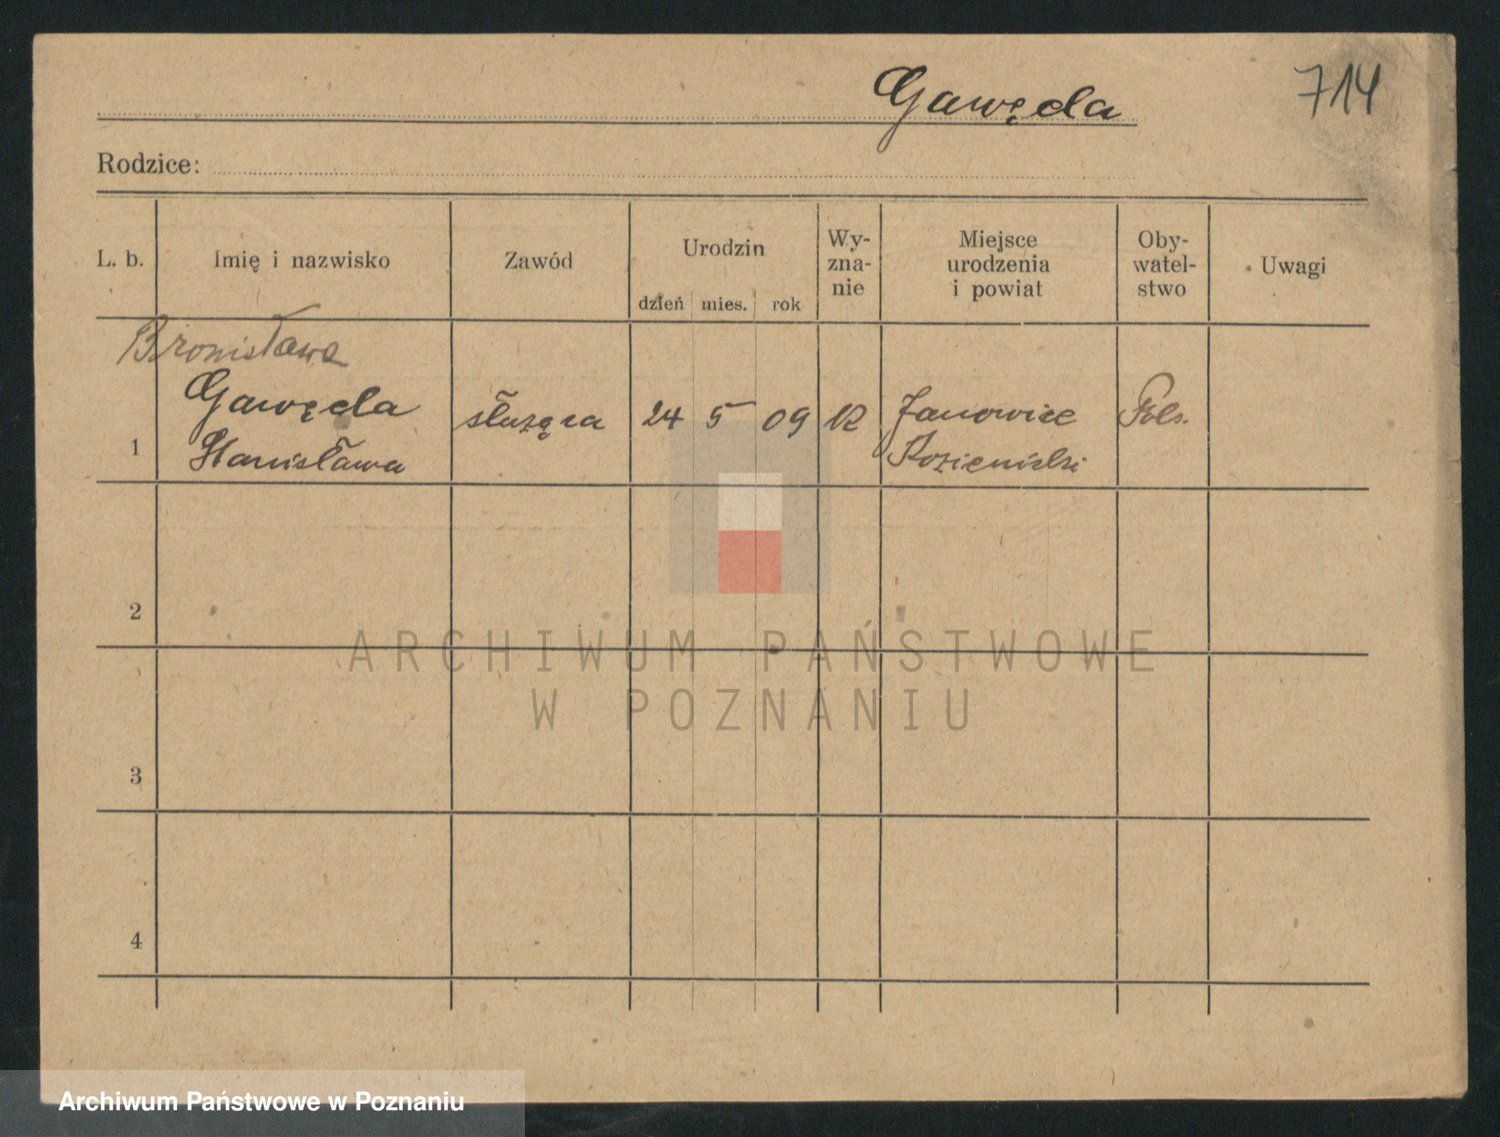 Gawęda
714
Rodzice:
L. b. Imię i nazwisko Zawód Urodzin dzień mies. rok Wy-zna-nie Miejsce urodzenia i powiat Oby-watel-stwo Uwagi
Bronisława
Gawęda służąca 24 5 09 Janowice Pols.
1 Stanisława
2
3
4
ARCHIWUM PAŃSTWOWE
W POZNANIU
Archiwum Państwowe w Poznaniu